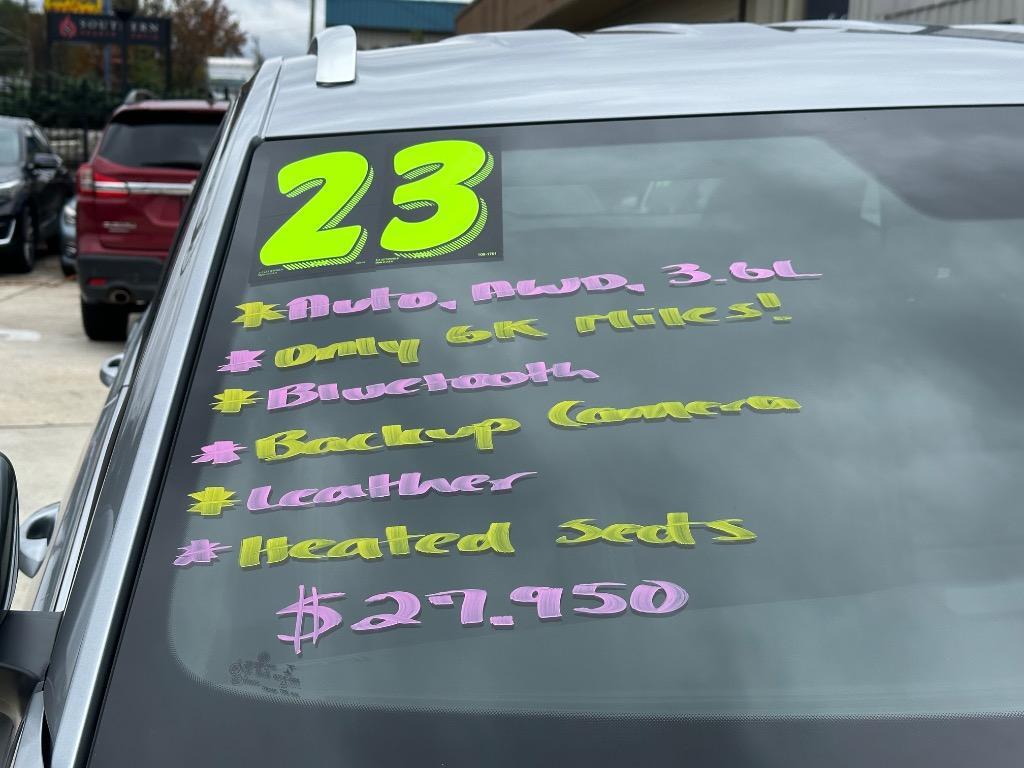 SOUTHERN
23
*Auto, AWD, 3.6L
*Only 6K Miles!
*Bluetooth
*Backup Camera
*Leather
*Heated Seats
$27,950